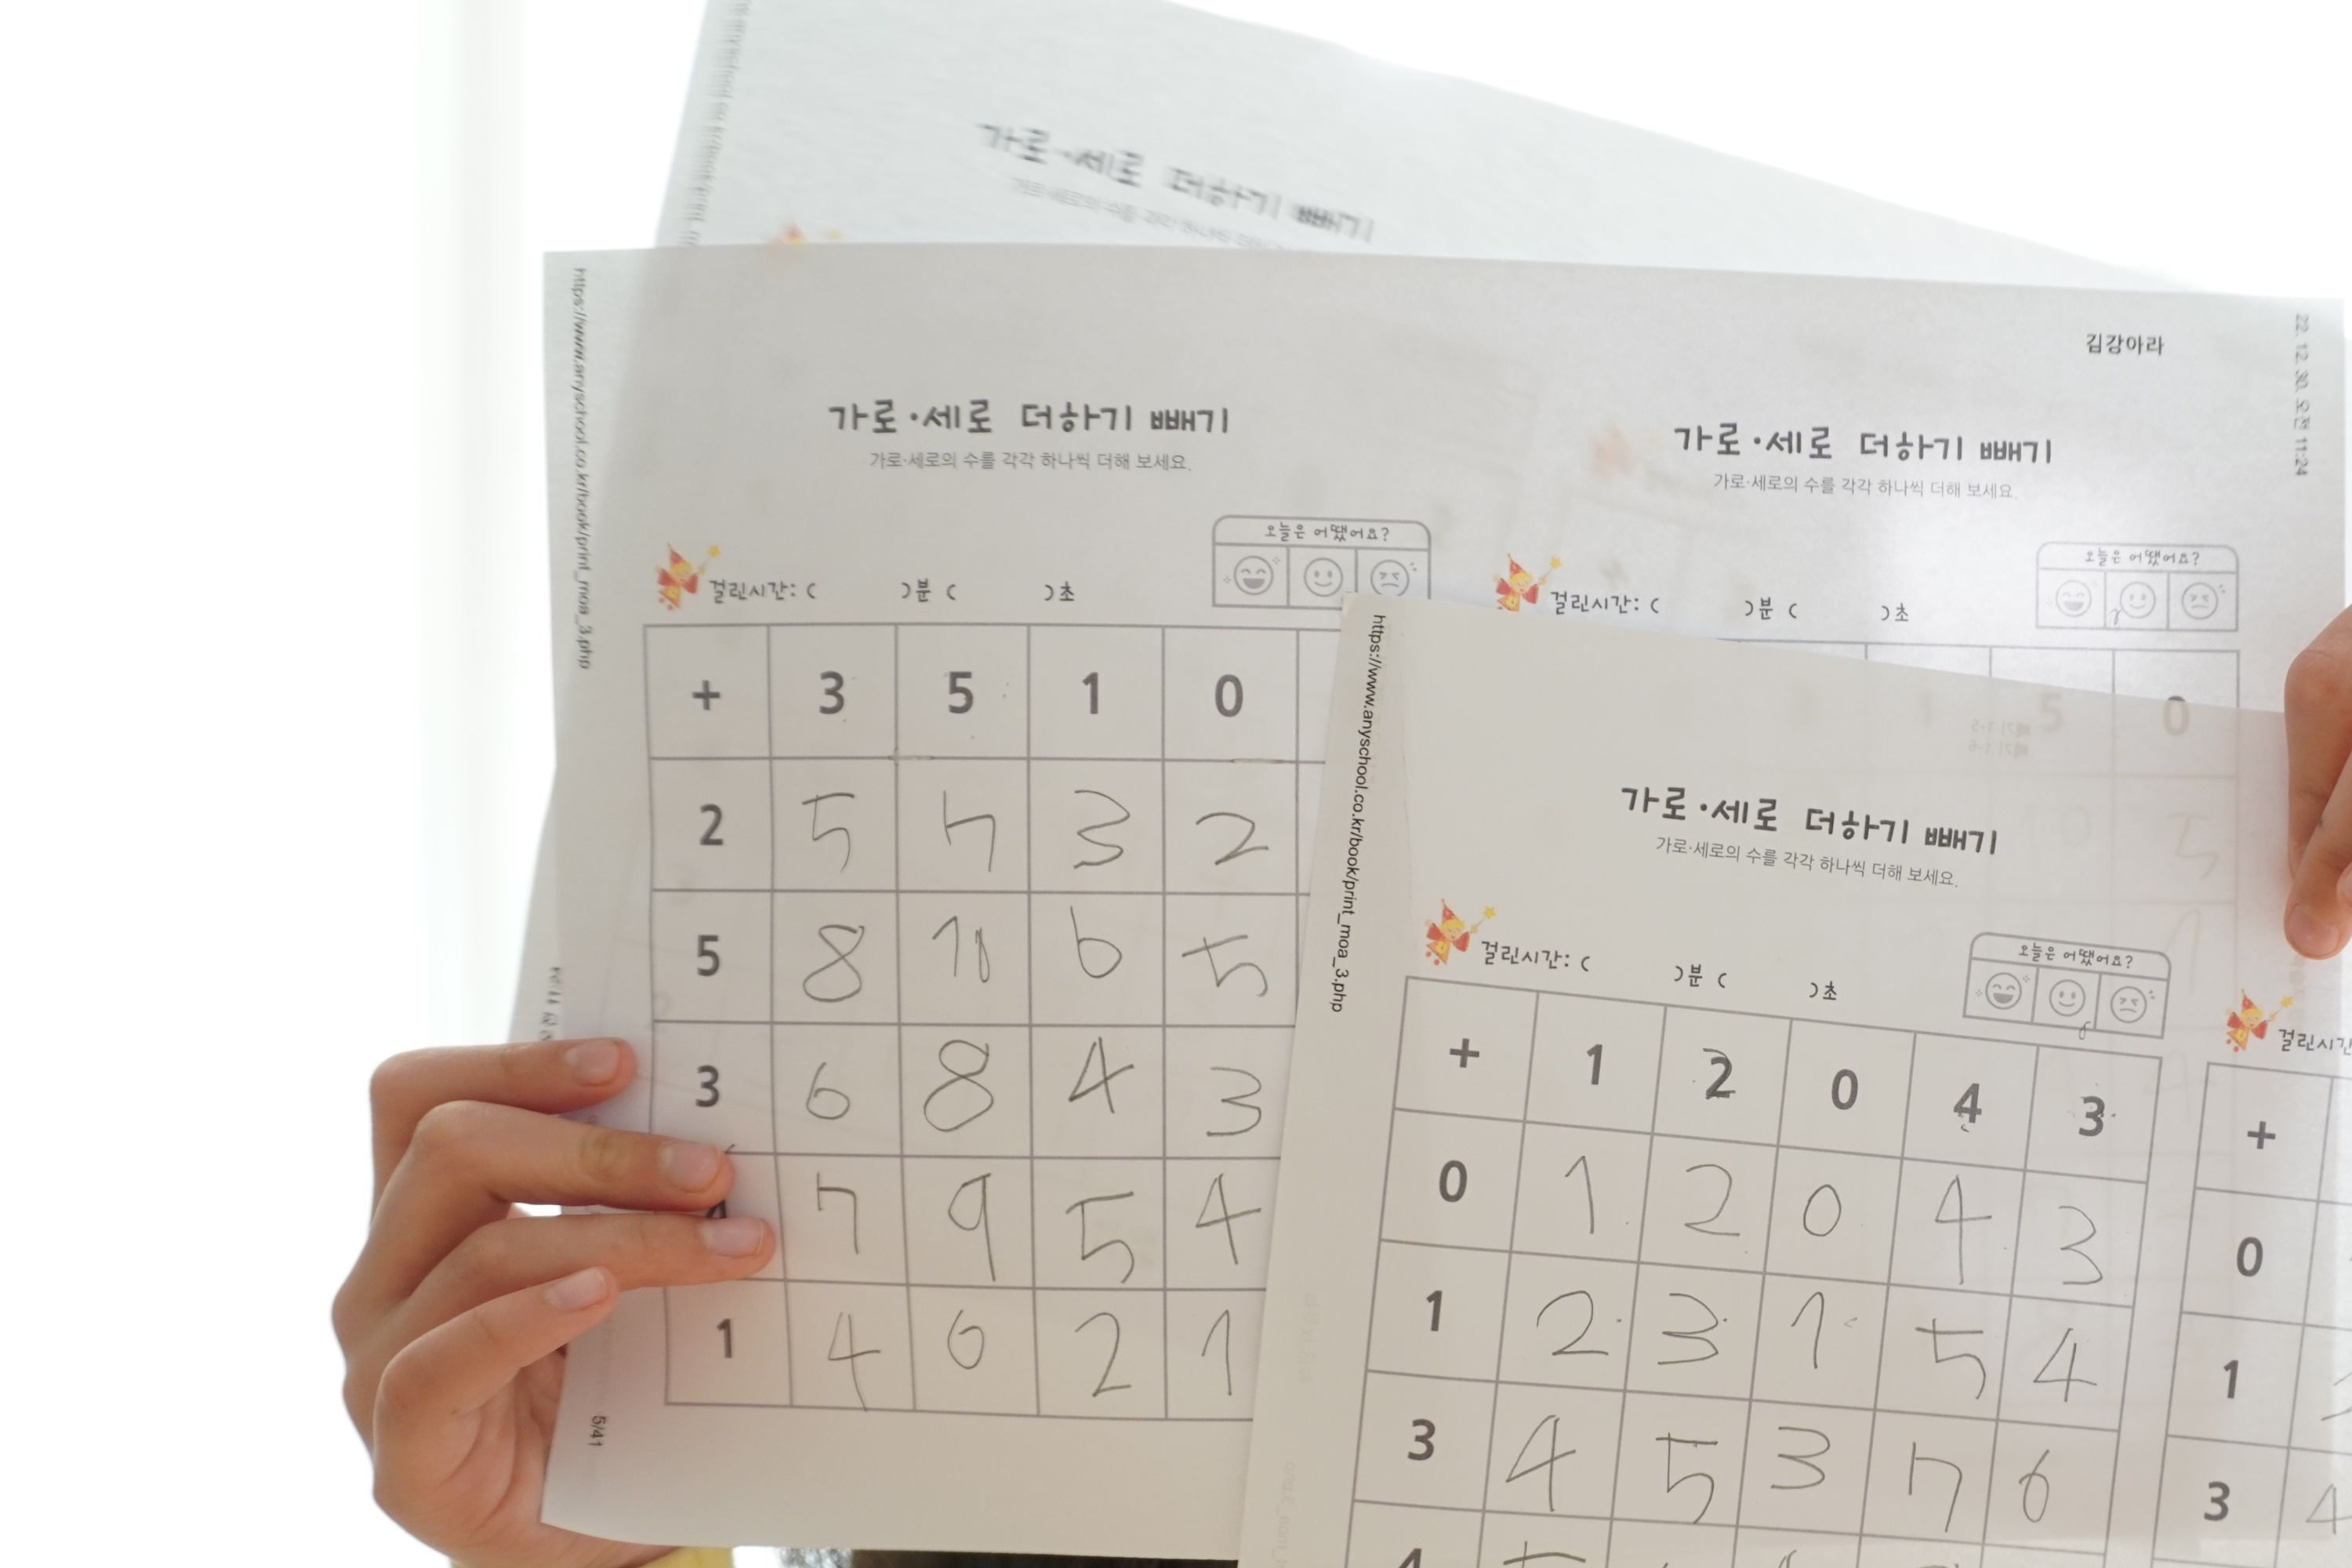 가로·세로 더하기 빼기
https://www.anyschool.co.kr/book/print_moa_3.php
김강아라
22. 12. 30. 오전 11:24
가로·세로 더하기 빼기
가로·세로의 수를 각각 하나씩 더해 보세요.
오늘은 어땠어요?
걸린시간: ( )분 ( )초
+ 3 5 1 0
2 5 7 3 2
5 8 10 6 5
3 6 8 4 3
4 7 9 5 4
1 4 6 2 1
5/41
가로·세로 더하기 빼기
가로·세로의 수를 각각 하나씩 더해 보세요.
오늘은 어땠어요?
걸린시간: ( )분 ( )초
5 0
https://www.anyschool.co.kr/book/print_moa_3.php
가로·세로 더하기 빼기
가로·세로의 수를 각각 하나씩 더해 보세요.
오늘은 어땠어요?
걸린시간: ( )분 ( )초
+ 1 2 0 4 3
0 1 2 0 4 3
1 2 3 1 5 4
3 4 5 3 7 6
4
걸린시간
+
0
1
3 4